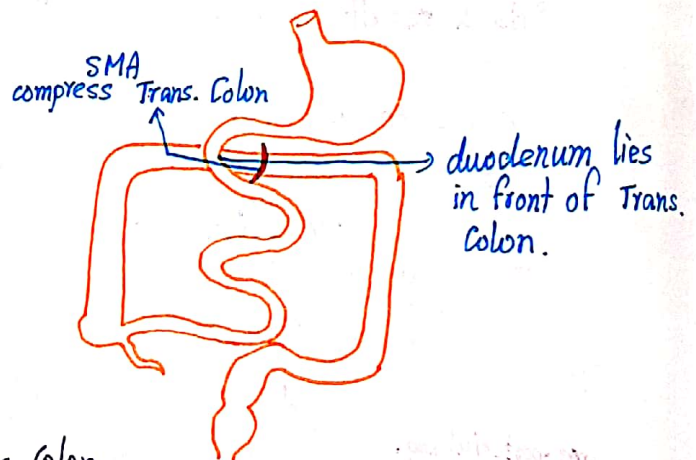 SMA
compress Trans. Colon
duodenum lies
in front of Trans.
Colon.
Colon